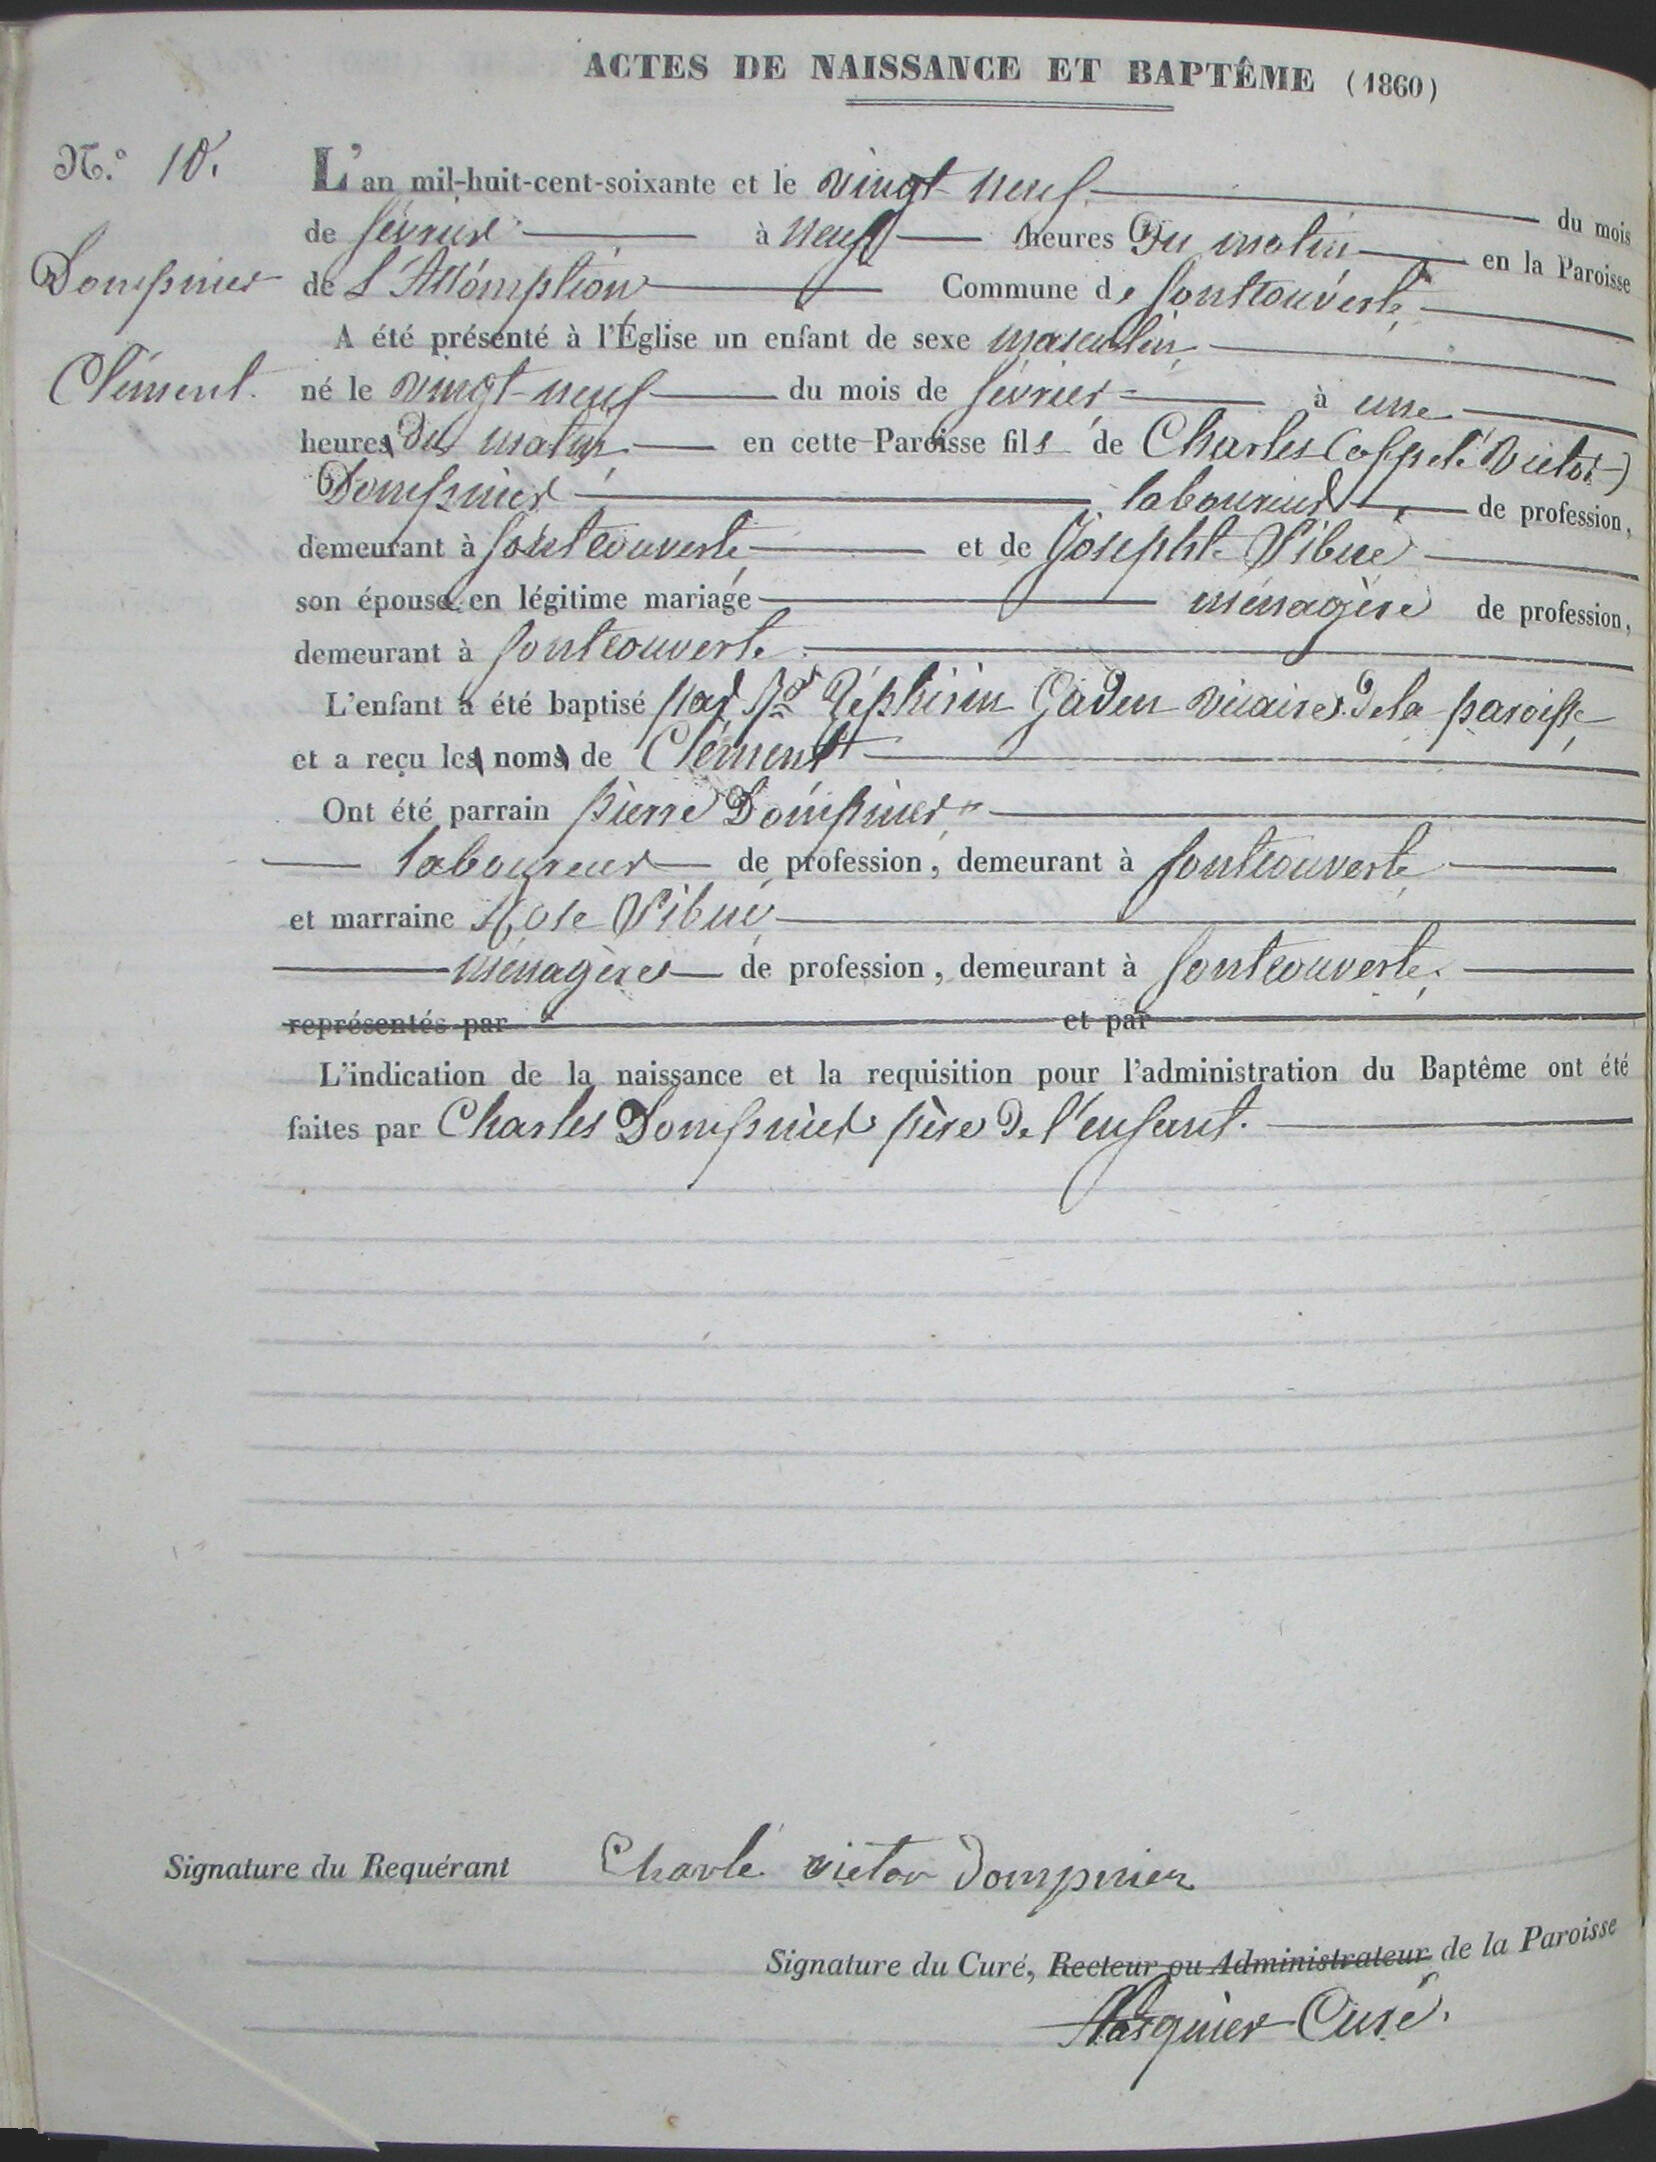 ACTES DE NAISSANCE ET BAPTÊME (1860)
N.° 10.
L'an mil-huit-cent-soixante et le vingt neuf du mois
de février à neuf heures du matin en la Paroisse
Dompnier
de L'Assomption Commune de fontcouverte
A été présenté à l'Église un enfant de sexe masculin
Clément.
né le vingt-neuf du mois de février à une
heures du matin en cette Paroisse fils de Charles (appelé Victor)
Dompnier laboureur de profession,
demeurant à fontcouverte et de Josephte Sibué
son épouse en légitime mariage ménagère de profession,
demeurant à fontcouverte
L'enfant a été baptisé par Rd Zéphirin Gaden vicaire de la paroisse
et a reçu les noms de Clément
Ont été parrain pierre Dompnier
laboureur de profession, demeurant à fontcouverte
et marraine Rose Sibué
ménagère de profession, demeurant à fontcouverte
représentés par et par
L'indication de la naissance et la requisition pour l'administration du Baptême ont été
faites par Charles Dompnier père de l'enfant.
Signature du Requérant Charle victor Dompnier
Signature du Curé, Recteur ou Administrateur de la Paroisse
Curé.